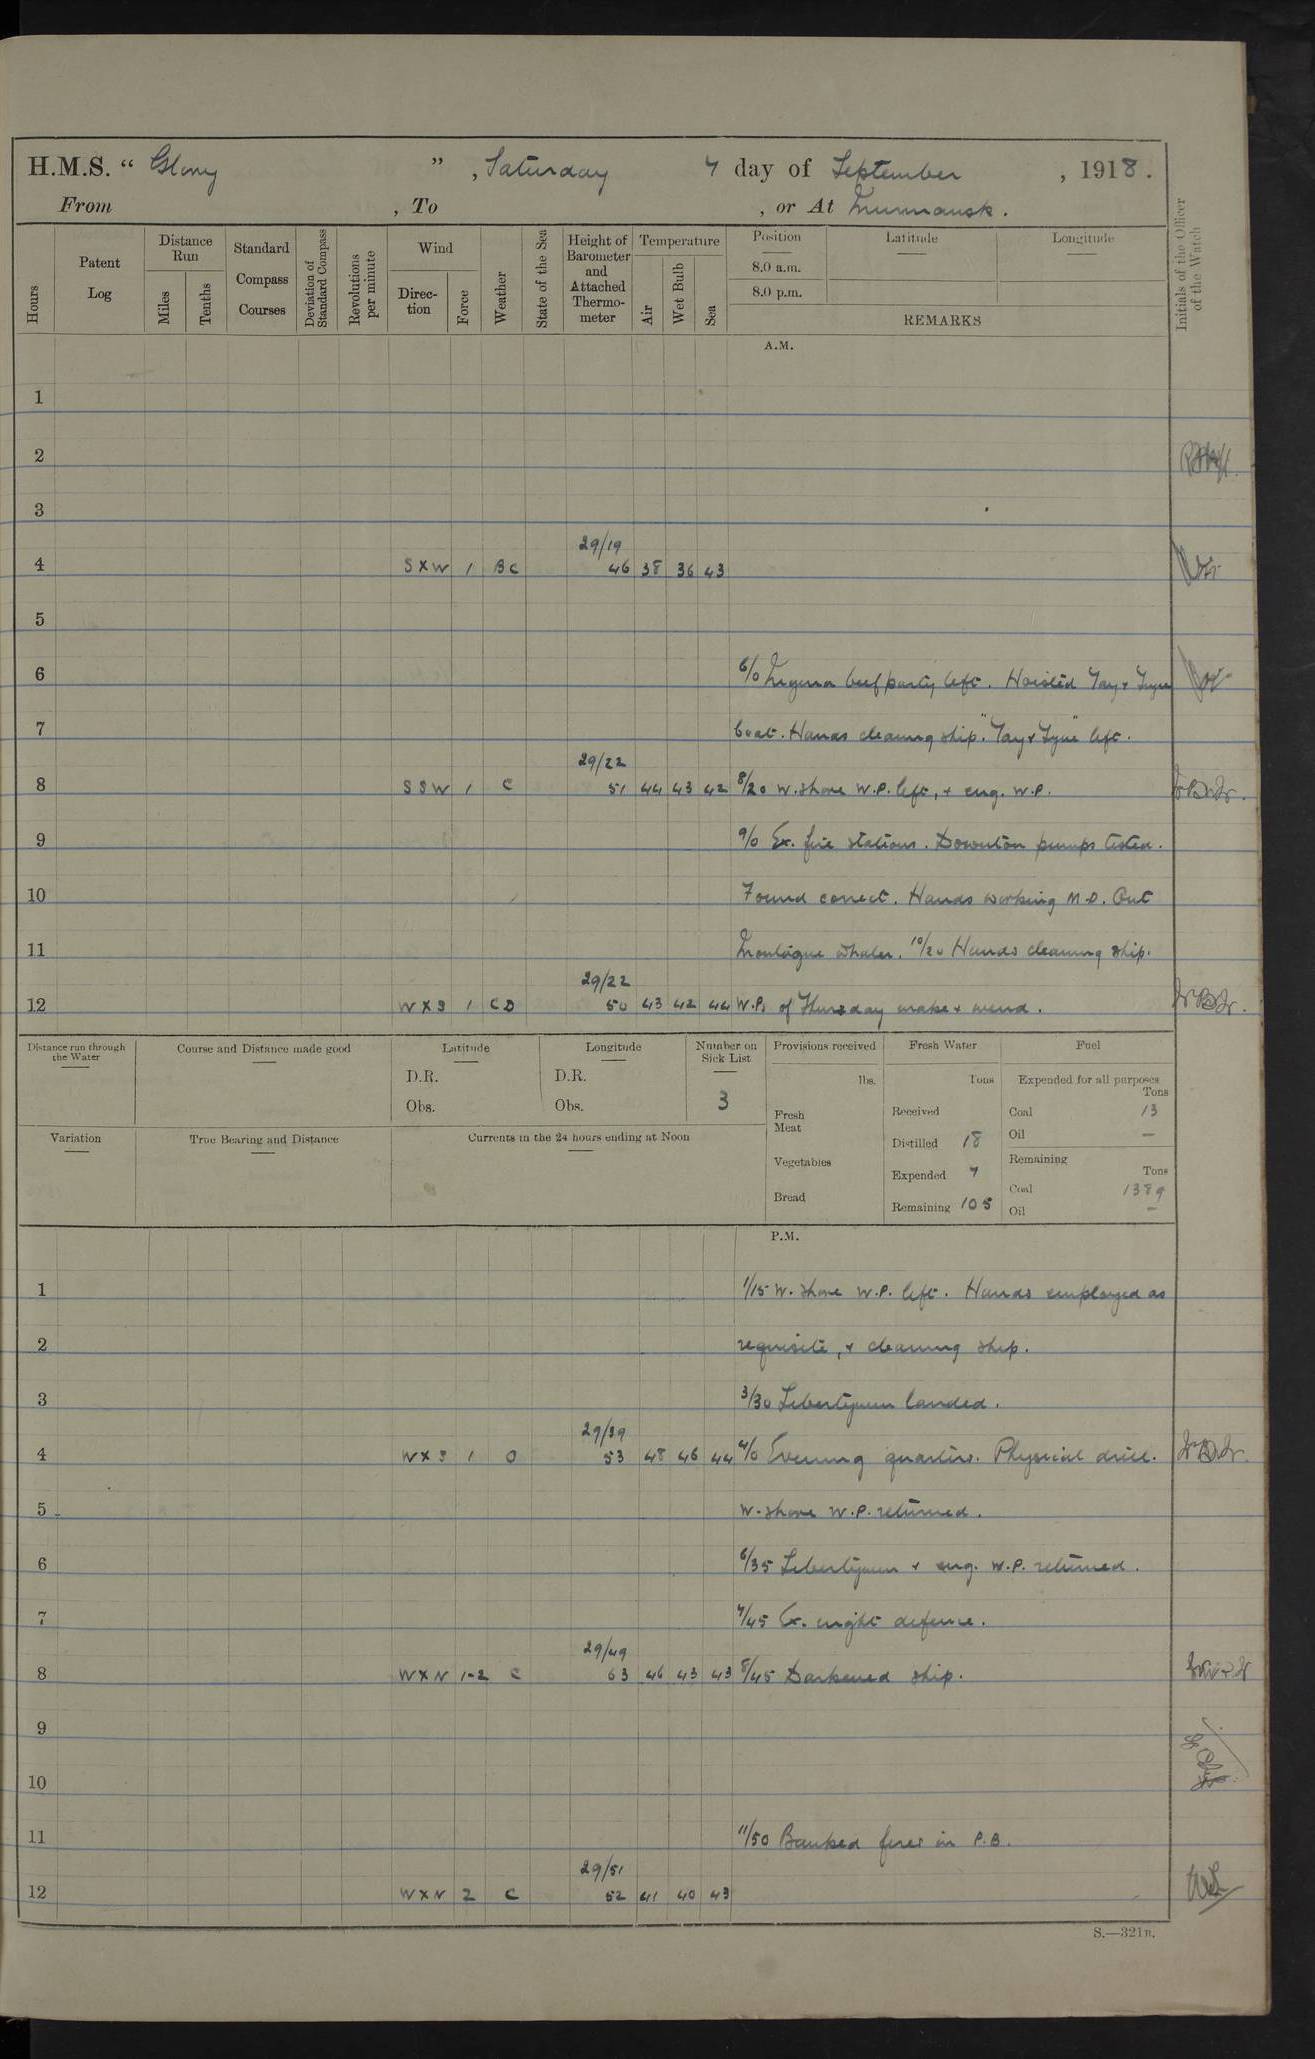 H.M.S. " Glory " , Saturday 7 day of September , 1918.
From , To , or At Murmansk.
Hours
Patent Log
Distance Run
Miles
Tenths
Standard Compass Courses
Deviation of Standard Compass
Revolutions per minute
Wind
Direction
Force
Weather
State of the Sea
Height of Barometer and Attached Thermometer
Temperature
Air
Wet Bulb
Sea
Position
Latitude
Longitude
8.0 a.m.
8.0 p.m.
REMARKS
Initials of the Officer of the Watch
A.M.
1
2
3
29/19
4 SXW 1 BC 46 38 36 43
5
6 6/0 beef party left. Hoisted Tay & Tyne
7 boat. Hands cleaning ship. "Tay & Tyne" left.
29/22
8 SSW 1 C 51 44 43 42 8/20 W. shore W.P. left, & eng. W.P.
9 9/0 Ex. fire stations. Downton pumps tested.
10 Found correct. Hands working M.D. Out
11 Montague whaler. 10/20 Hands cleaning ship.
29/22
12 WXS 1 CD 50 43 42 44 W.Ps of Thursday make & mend.
Distance run through the Water
Course and Distance made good
Latitude
D.R.
Obs.
Longitude
D.R.
Obs.
Number on Sick List
3
Provisions received
lbs.
Fresh Meat
Vegetables
Bread
Fresh Water
Tons
Received
Distilled 18
Expended 7
Remaining 105
Fuel
Expended for all purposes
Tons
Coal 13
Oil —
Remaining
Tons
Coal 1389
Oil —
Variation
True Bearing and Distance
Currents in the 24 hours ending at Noon
P.M.
1 1/15 W. shore W.P. left. Hands employed as
2 requisite, & cleaning ship.
3 3/30 Libertymen landed.
29/39
4 WXS 1 O 53 48 46 44 4/0 Evening quarters. Physical drill.
5 W. shore W.P. returned.
6 6/35 Libertymen & eng. W.P. returned.
7 7/45 Ex. night defence.
29/49
8 WXN 1-2 C 63 46 43 43 8/45 Darkened ship.
9
10
11 11/50 Banked fires in P.B.
29/51
12 WXN 2 C 52 41 40 43
S.—321B.